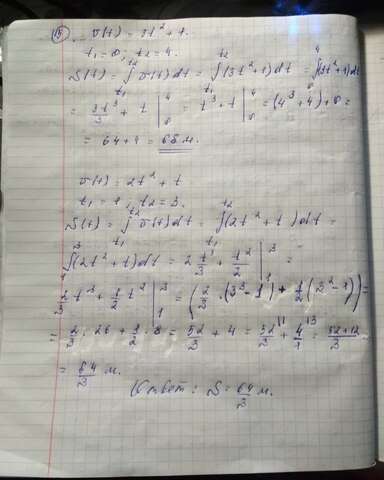 15 v(t) = 3t² + 1.
t₁ = 0, t₂ = 4.
S(t) = ∫ₜ₁ᵗ² v(t)dt = ∫ₜ₁ᵗ² (3t² + 1)dt = ∫₀⁴ (3t² + 1)dt
= 3t³/3 + t |₀⁴ = t³ + t |₀⁴ = (4³ + 4) + 0 =
= 64 + 4 = 68 м.
v(t) = 2t² + t
t₁ = 1, t₂ = 3.
S(t) = ∫ₜ₁ᵗ² v(t)dt = ∫ₜ₁ᵗ² (2t² + t)dt =
∫₁³ (2t² + t)dt = 2 t³/3 + t²/2 |₁³ =
2/3 t³ + 1/2 t² |₁³ = (2/3 · (3³ - 1³) + 1/2 (3² - 1) =
= 2/3 · 26 + 1/2 · 8 = 52/3 + 4 = 52/3 + 4/1 = 52+12/3
= 64/3 м.
Ответ: S = 64/3 м.